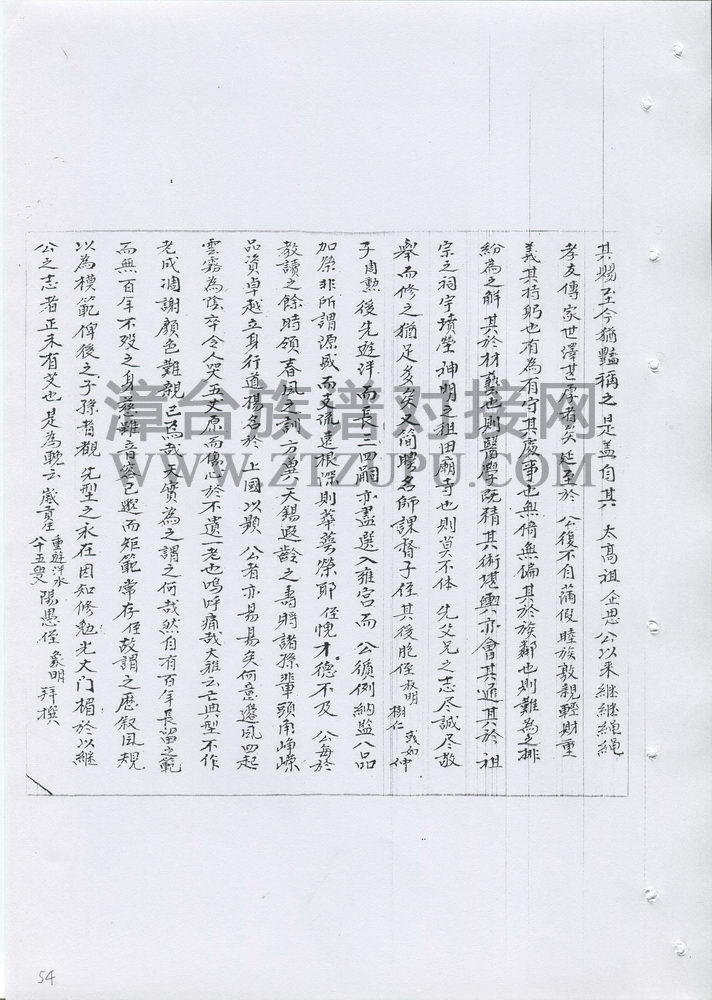 其賜至今猶豔稱之是盖自其 太高祖企思公以来継継绳绳
孝友傳家世澤甚厚者矣延至於 公復不自蒲假睦族敦親輕財重
義其持躬也有為有守其處事也無倚無偏其於族鄰也則難為之排
紛為之解其於材藝也則醫學既精其術堪輿亦會其通其於祖
宗之祠宇墳塋神明之祖田廟寺也則莫不体 先父兄之志尽誠尽敬
舉而修之猶足多矣又簡聘名師課督子侄其後胞侄叔明 樹仁 或如仲
子用勲後先遊泮而長三四嗣亦盡選入雍宫而 公循例納监八品
加榮非所謂源盛而支流遠根深則華萼榮耶 侄愧才德不及 公每於
教讀之餘時領春風之訓方兾天錫遐齡之壽將諸孫輩頭角崢嶸
品資卓越立身行道揚名於 上國以顯 公者亦易易矣何意邊风四起
雲霧為陰卒令人哭五丈原而傷心於不遺一老也嗚呼痛哉大雅云亡典型不作
老成凋謝顏色難親已焉哉天實為之謂之何哉然自有百年長留之範
而無百年不殁之身兹雖音容已邈而矩範常存侄故謂之歷叙風規
以為模範俾後之子孫者觀 先型之永在因知修勉光大门楣於以継
公之志者正未有艾也是為歌云 歲貢生 重遊泮水 八十五叟 陽愚侄 象明 拜撰
54
漳台族谱对接网
WWW.ZTZUPU.COM